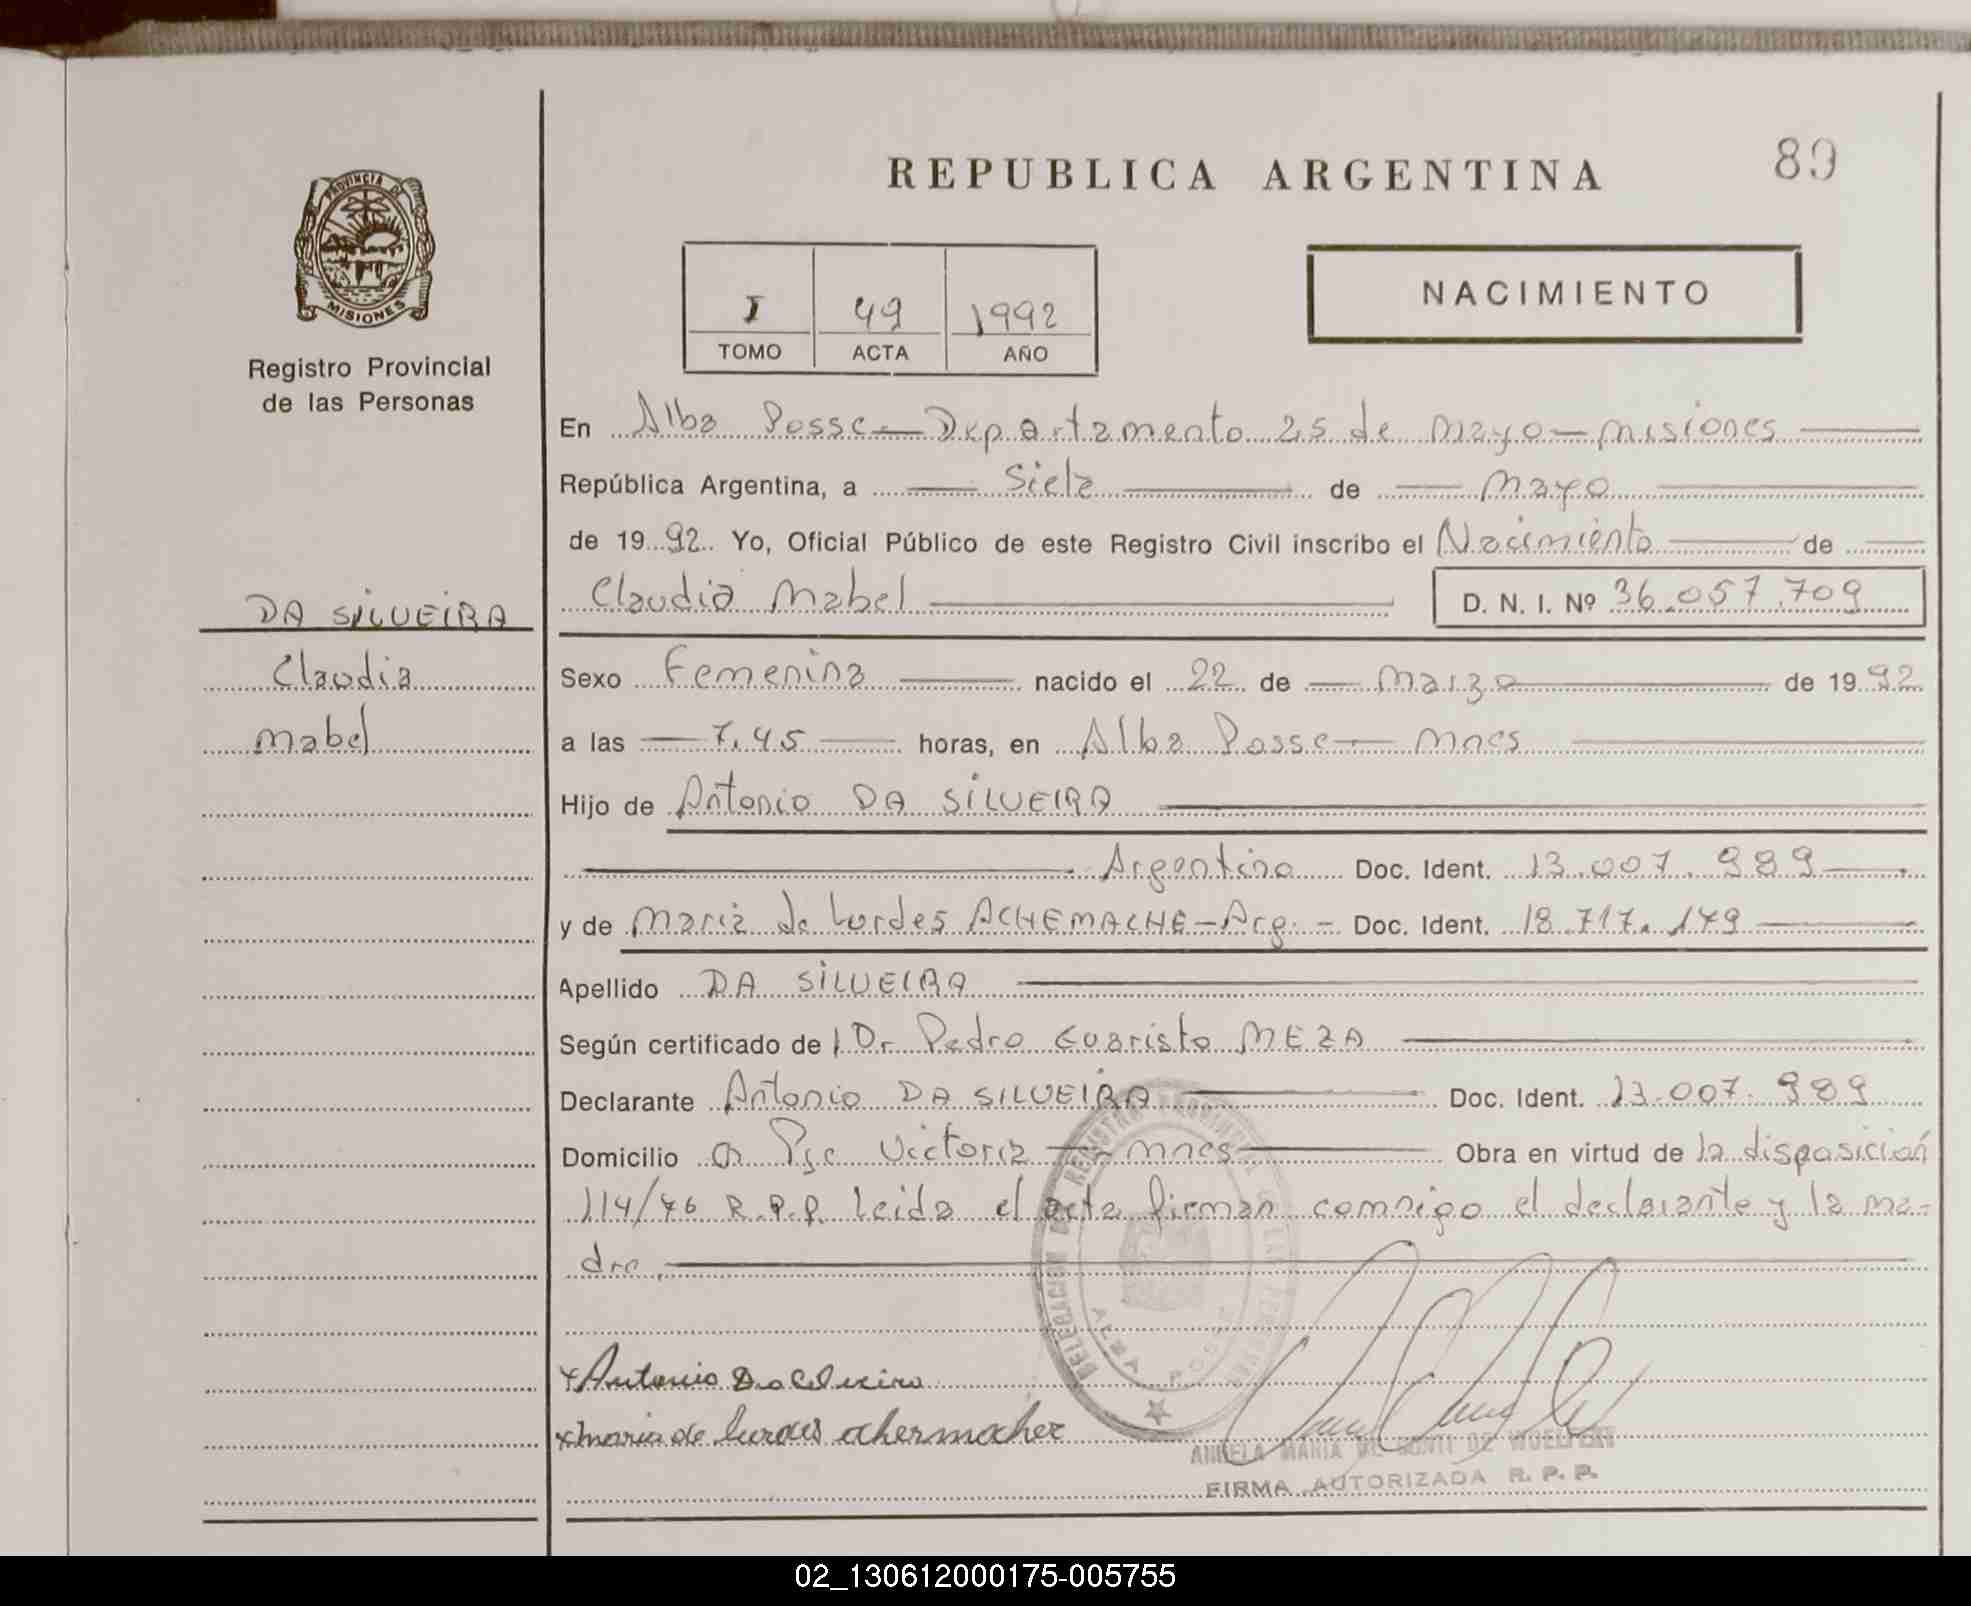 REPUBLICA ARGENTINA
89
PROVINCIA DE
MISIONES
Registro Provincial
de las Personas
I 49 1992
TOMO ACTA AÑO
NACIMIENTO
En Alba Posse - Departamento 25 de Mayo - Misiones
República Argentina, a siete de Mayo
de 1992. Yo, Oficial Público de este Registro Civil inscribo el Nacimiento de
Claudia Mabel D. N. I. Nº 36.057.709
DA SILVEIRA
Claudia
Mabel
Sexo Femenina nacido el 22 de Marzo de 1992
a las 7,45 horas, en Alba Posse - Mnes
Hijo de Antonio DA SILVEIRA
Argentino Doc. Ident. 13.007.989
y de Maria de Lurdes ACHEMACHE - Arg. - Doc. Ident. 18.717.179
Apellido DA SILVEIRA
Según certificado de l Dr Pedro Evaristo MEZA
Declarante Antonio DA SILVEIRA Doc. Ident. 13.007.989
Domicilio Victoria - Mnes Obra en virtud de la disposición
114/76 R.P.P. Leida el acta firman comnigo el declarante y la ma-
dre.
DELEGACION DEL REGISTRO PROVINCIAL DE LAS PERSONAS
ALBA POSSE
x Antonio Da Silveira
x Maria de Lurdes Achermacher
ANGELA MARIA DE
FIRMA AUTORIZADA R. P. P.
02_130612000175-005755